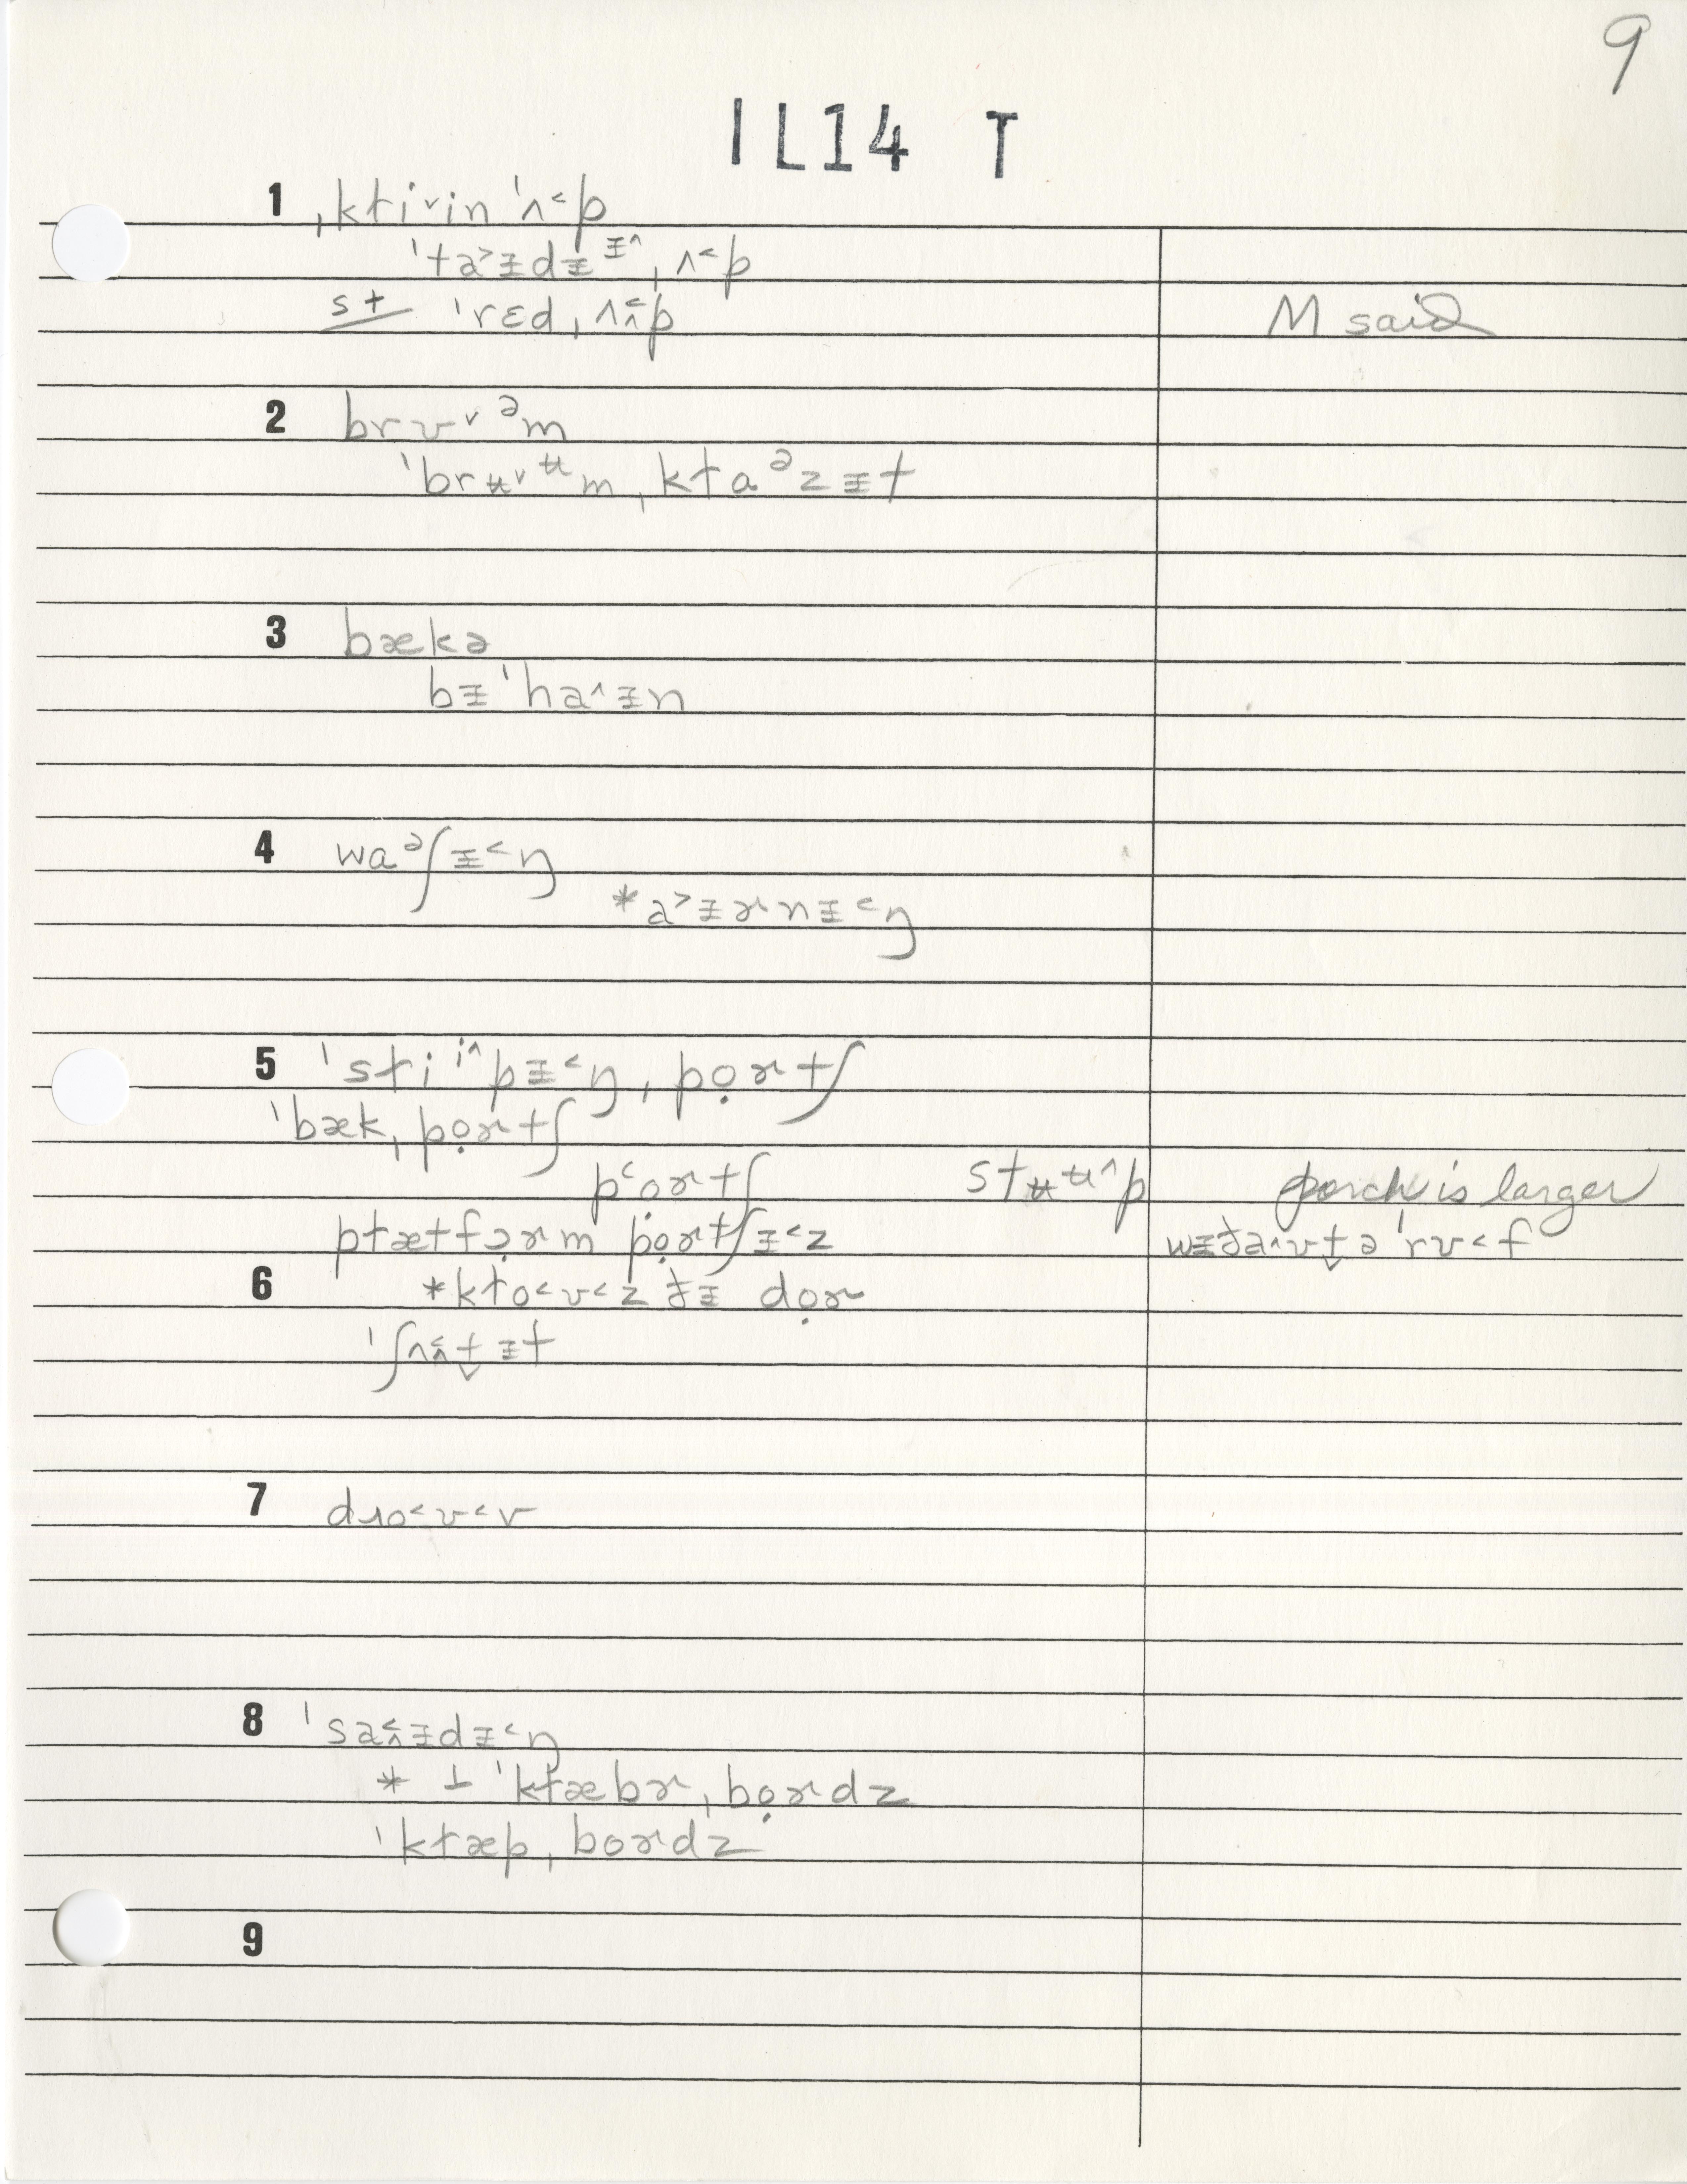 9
IL14 T
1 ˌkɫi˅in ˈʌ˂p
ˈta˃ɪ̵dɪ̵ ɪ̵˄ˌʌ˂p
st ˈrɛdˌʌ˂̭p M said
2 brʊ˅ᵊm
ˈbrʉ˅ᶶmˌkɫaᵊzɪ̵t
3 bækə
bɪ̵ˈha˄ɪ̵n
4 waᵊʃɪ̵˂ŋ
*a˃ɪ̵ɚnɪ̵˂ŋ
5 ˈsɫiⁱ˄pɪ̵˂ŋˌpọɚtʃ
ˈbækˌpọɚtʃ
pʻọɚtʃ stʉᶶ˄p porch is larger
pɫætfɔ̣ɚm pọɚtʃɪ̵˂z wɪ̵ða˄ʊt̬ ə ˈrʊ˂f
6 *kɫo˂ʊ˂z ðɪ̵ dọɚ
ˈʃʌ˂̭t̬ ɪ̵t
7 dɹo˂ʊ˂v
8 ˈsa˂̭ɪ̵dɪ̵˂ŋ
* ⊥ ˈkɫæbɚˌbọɚdz
ˈkɫæpˌboɚdz
9